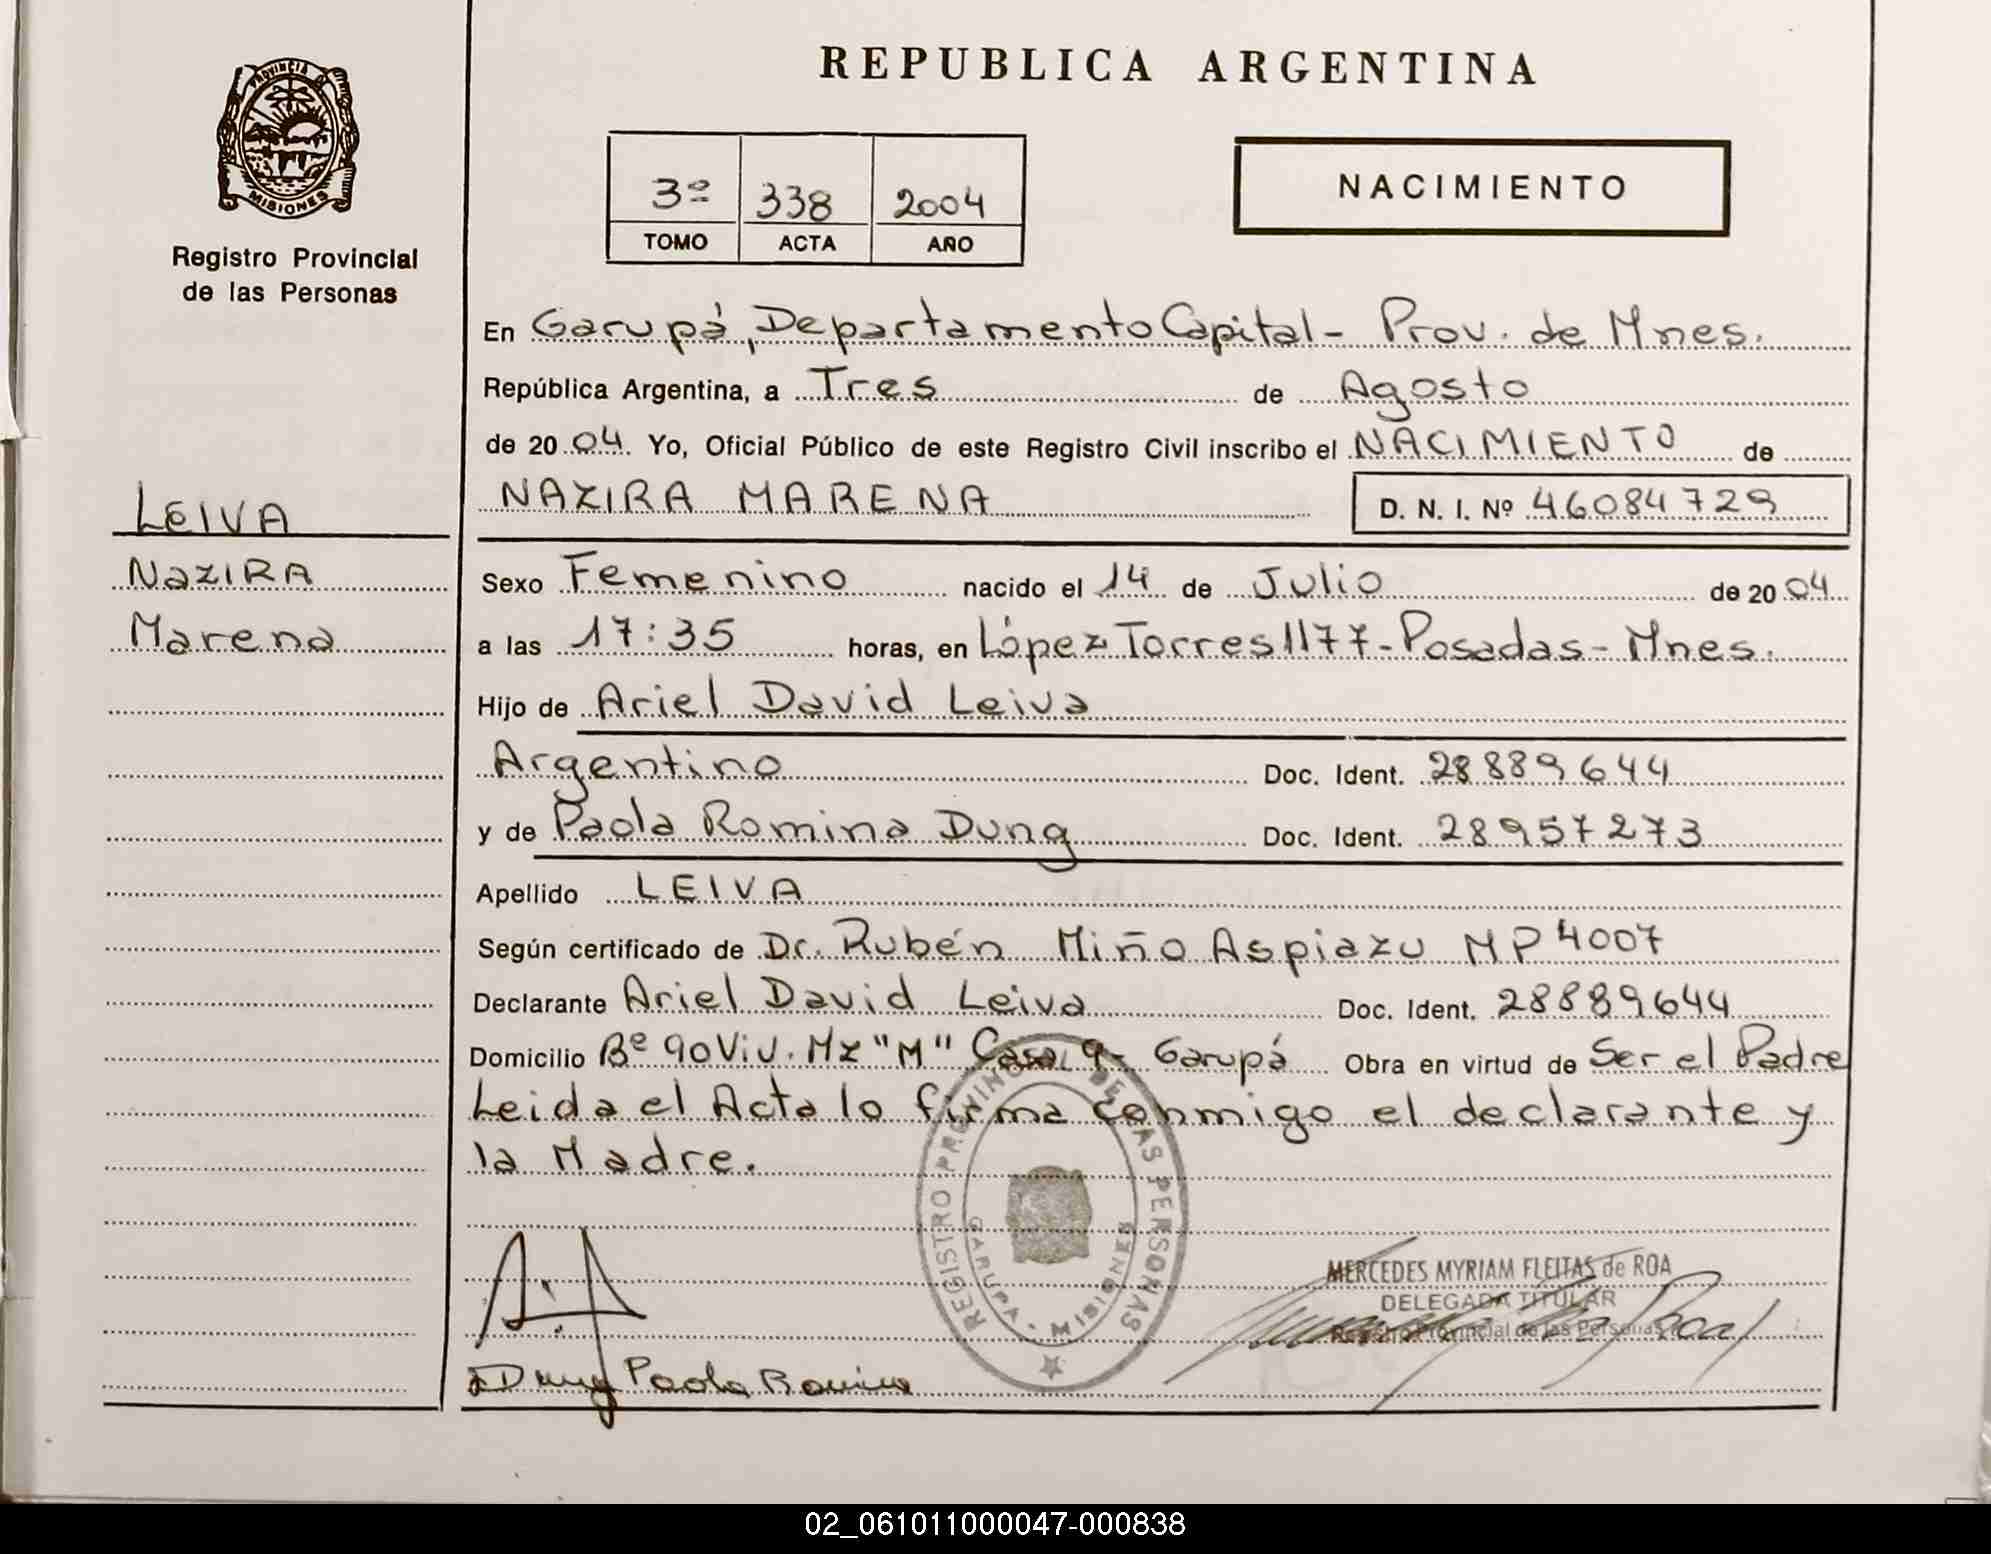 REPUBLICA ARGENTINA
PROVINCIA DE
MISIONES
Registro Provincial
de las Personas
3º 338 2004
TOMO ACTA AÑO
NACIMIENTO
LEIVA
NAZIRA
Marena
En Garupá, Departamento Capital - Prov. de Mnes.
República Argentina, a Tres de Agosto
de 2004. Yo, Oficial Público de este Registro Civil inscribo el NACIMIENTO de
NAZIRA MARENA D. N. I. Nº 46084729
Sexo Femenino nacido el 14 de Julio de 2004
a las 17:35 horas, en López Torres 1177 - Posadas - Mnes.
Hijo de Ariel David Leiva
Argentino Doc. Ident. 28889644
y de Paola Romina Dung Doc. Ident. 28957273
Apellido LEIVA
Según certificado de Dr. Rubén Miño Aspiazu MP 4007
Declarante Ariel David Leiva Doc. Ident. 28889644
Domicilio Bº 90 Viv. Mz "M" Casa 9 - Garupá Obra en virtud de Ser el Padre
Leida el Acta lo firma conmigo el declarante y
la Madre.
REGISTRO PROVINCIAL DE LAS PERSONAS
GARUPA - MISIONES
MERCEDES MYRIAM FLEITAS de ROA
DELEGADA TITULAR
Registro Provincial de las Personas
Dung Paola Romina
02_061011000047-000838